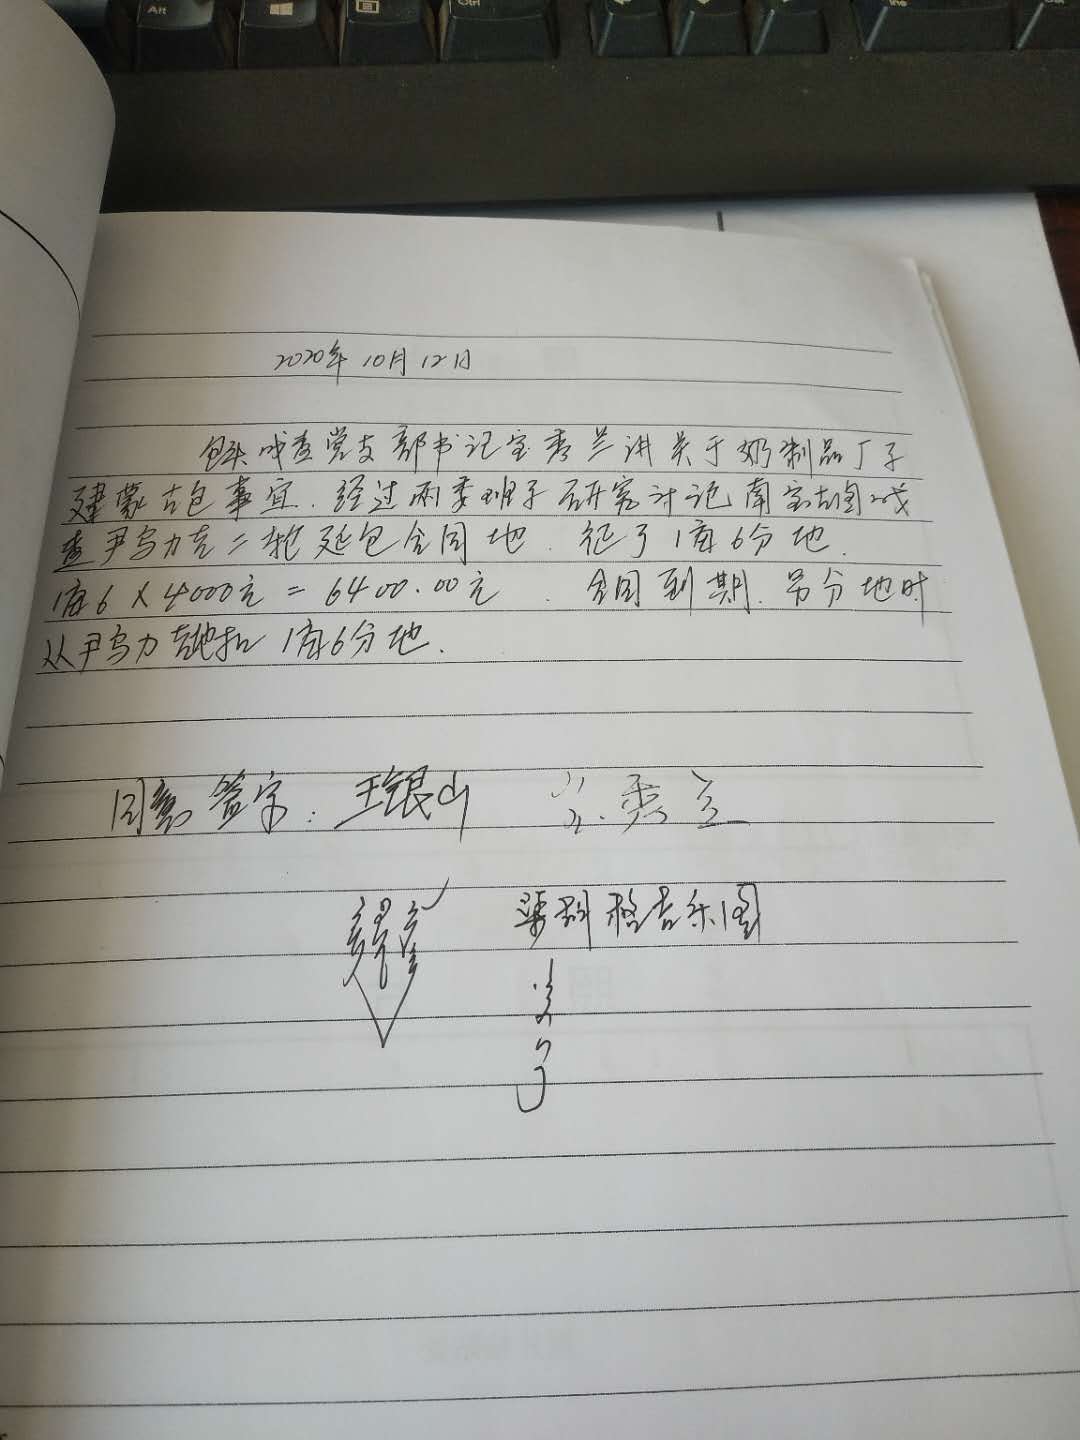 Alt
Ctrl
2020年10月12日
嘎查党支部书记宝秀兰讲关于奶制品厂子
建蒙古包事宜.经过两委班子研究讨论南宝力图嘎
查尹乌力吉二轮延包合同地.征了1亩6分地.
1亩6×4000元=6400.00元.合同到期.另分地时
从尹乌力吉地扣1亩6分地.
同意签字:王银山
格吉乐图